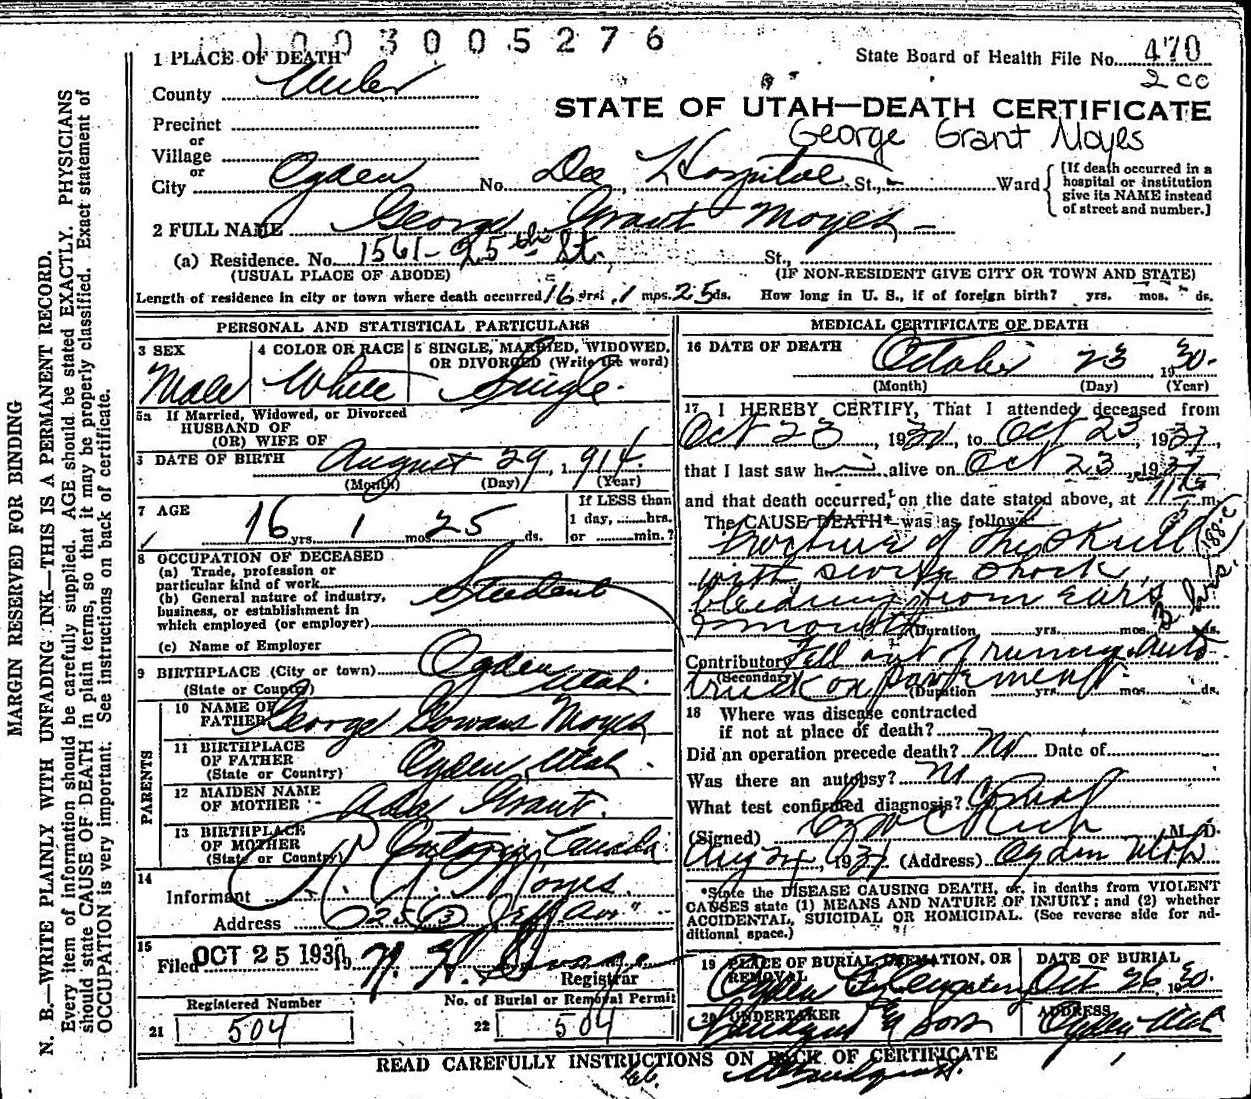 1003005276
1 PLACE OF DEATH
State Board of Health File No. 470
2 cc
County Weber
STATE OF UTAH—DEATH CERTIFICATE
Precinct
George Grant Noyes
or
Village
or
City Ogden No. Dee Hospital St., Ward
[If death occurred in a
hospital or institution
give its NAME instead
of street and number.]
2 FULL NAME George Grant Moyes
(a) Residence. No. 1561-25th St. St.,
(USUAL PLACE OF ABODE) (IF NON-RESIDENT GIVE CITY OR TOWN AND STATE)
Length of residence in city or town where death occurred 16 yrs. 1 mos. 25 ds. How long in U. S., if of foreign birth? yrs. mos. ds.
PERSONAL AND STATISTICAL PARTICULARS
3 SEX Male
4 COLOR OR RACE White
5 SINGLE, MARRIED, WIDOWED,
OR DIVORCED (Write the word)
Single
5a If Married, Widowed, or Divorced
HUSBAND OF
(OR) WIFE OF
DATE OF BIRTH August 29, 1914
(Month) (Day) (Year)
7 AGE 16 yrs. 1 mos. 25 ds.
If LESS than
1 day, hrs.
or min.?
8 OCCUPATION OF DECEASED
(a) Trade, profession or
particular kind of work
(b) General nature of industry,
business, or establishment in
which employed (or employer)
Student
(c) Name of Employer
9 BIRTHPLACE (City or town) Ogden
(State or Country) Utah.
PARENTS
10 NAME OF
FATHER George Gowans Moyes
11 BIRTHPLACE
OF FATHER
(State or Country) Ogden, Utah.
12 MAIDEN NAME
OF MOTHER Ada Grant.
13 BIRTHPLACE
OF MOTHER
(State or Country) Ontario, Canada
14
Informant Moyes
Address Jeff Ave
15
Filed OCT 25 1930 19
Registrar
Registered Number
21 504
No. of Burial or Removal Permit
22 504
MEDICAL CERTIFICATE OF DEATH
16 DATE OF DEATH October 23 1930.
(Month) (Day) (Year)
17 I HEREBY CERTIFY, That I attended deceased from
Oct 23, 19 to Oct 23, 19
that I last saw h alive on Oct 23, 19
and that death occurred, on the date stated above, at m.
The CAUSE DEATH* was as follows
Fracture of the Skull
188-c
with severe shock
bleeding from ears
& mouth (Duration yrs. mos. ds.
3 hrs.
Contributory Fell out of running auto
(Secondary)
truck on pavement (Duration yrs. mos. ds.
18 Where was disease contracted
if not at place of death?
Did an operation precede death? No Date of
Was there an autopsy? No
What test confirmed diagnosis?
(Signed) Rich M. D.
Aug 24, 19 (Address) Ogden Utah
*State the DISEASE CAUSING DEATH, or, in deaths from VIOLENT
CAUSES state (1) MEANS AND NATURE OF INJURY; and (2) whether
ACCIDENTAL, SUICIDAL OR HOMICIDAL. (See reverse side for ad-
ditional space.)
19 PLACE OF BURIAL, CREMATION, OR
REMOVAL
Ogden City Cemetery
DATE OF BURIAL
Oct 26 1930.
20 UNDERTAKER
Lindquist & Sons
ADDRESS
Ogden Utah
READ CAREFULLY INSTRUCTIONS ON BACK OF CERTIFICATE
MARGIN RESERVED FOR BINDING
N. B.—WRITE PLAINLY WITH UNFADING INK—THIS IS A PERMANENT RECORD.
Every item of information should be carefully supplied. AGE should be stated EXACTLY. PHYSICIANS
should state CAUSE OF DEATH in plain terms, so that it may be properly classified. Exact statement of
OCCUPATION is very important. See instructions on back of certificate.